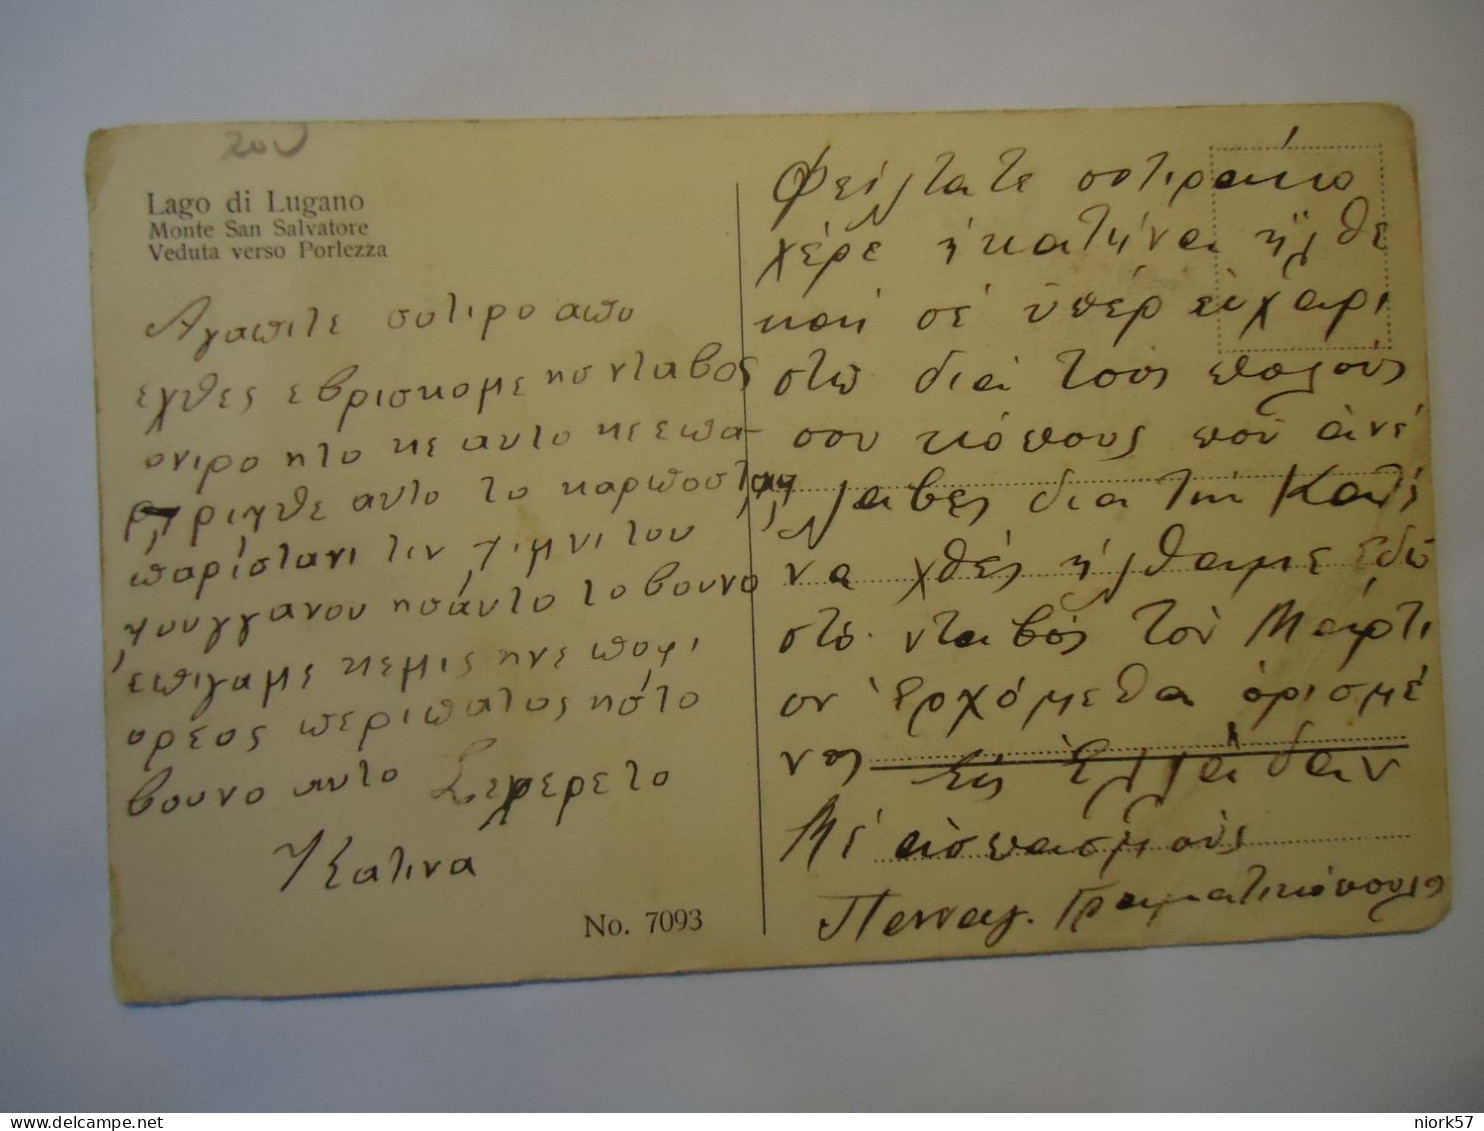 200
Lago di Lugano
Monte San Salvatore
Veduta verso Porlezza
Αγαπιτε σοτιρο απο
εχθες εβρισκομε ησ νταβος
ονιρο ητο κε αυτο κε επα-
αυτο το καρποσταλ
παρίστανι τιν λιμνι του
λουγγανου ησ αυτο το βουνο
επιγαμε κεμις ηνε πολι
ορεος περιπατος ησ το
βουνο αυτο Σε χερετο
Κατινα
No. 7093
Φείλτατε σοτιράκιο
χέρε ή κατήνα ήλθε
καί σέ ύπέρ εύχαρι
στώ διά τούς πολούς
σου κόπους πού άνέ
λαβες δια τήν Κατί
να χθές ήλθαμε εδώ
στό νταβός τόν Μάρτι
ον έρχόμεθα όρισμέ
νος είς Έλλάδαν
Μέ άσπασμούς
Παναγ. Γραμματικόπουλο
niork57